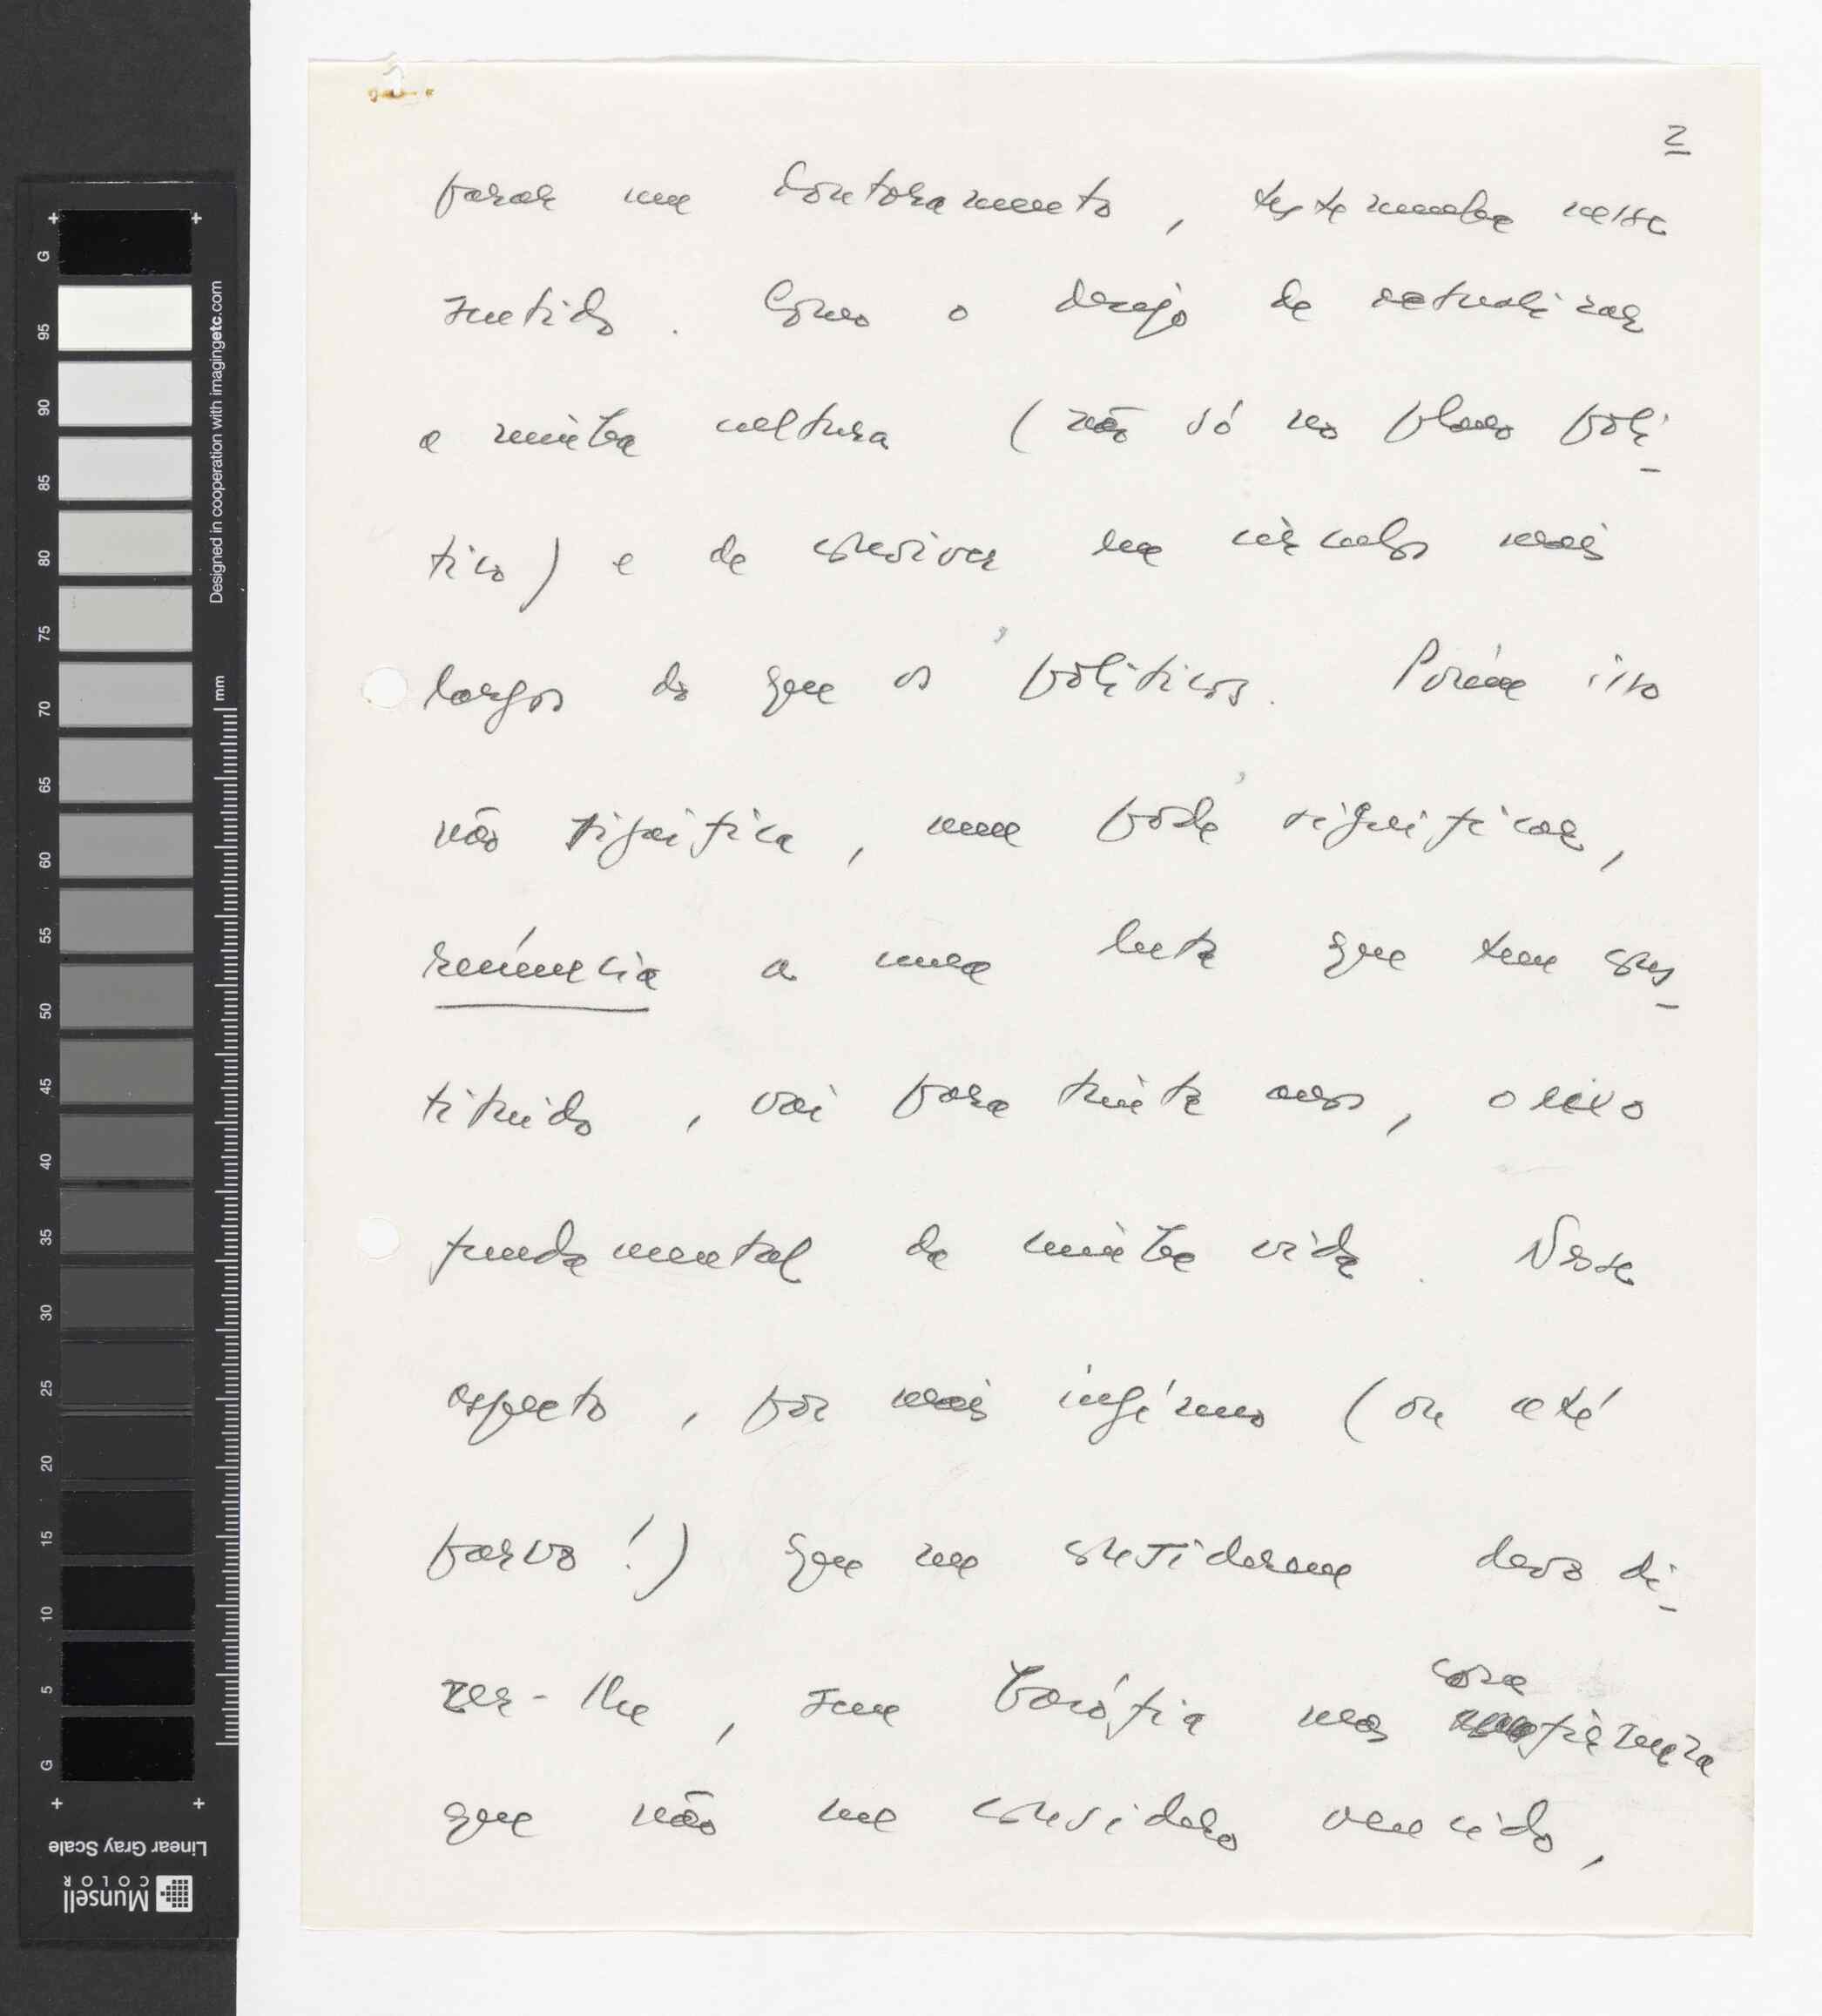 2
parar um doutoramento, testemunha nesse
sentido. Como o desejo de actualizar
a minha cultura (não só no plano polí-
tico) e de conviver em círculos mais
largos do que os políticos. Porém isso
não significa, nem pode significar,
renúncia a uma luta que tem cons-
tituído, vai para trinta anos, o eixo
fundamental da minha vida. Nesse
aspecto, por mais ingénuo (ou até
parvo!) que me considerem devo di-
zer-lhe, sem basófia mas com firmeza
que não me considero vencido,
G
95
90
85
80
75
70
65
60
55
50
45
40
35
30
25
20
15
10
5
G
mm
Designed in cooperation with imagingetc.com
Linear Gray Scale
Munsell
COLOR